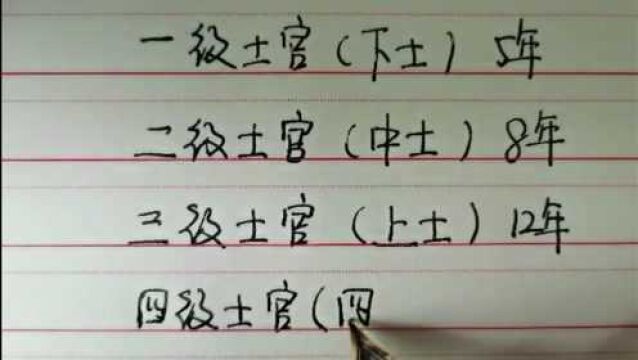 一级士官（下士）5年
二级士官（中士）8年
三级士官（上士）12年
四级士官（四